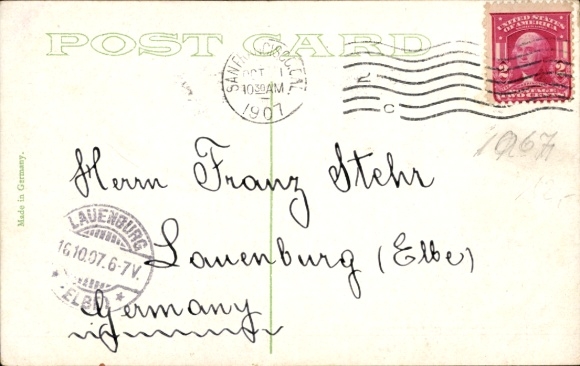 POST CARD
UNITED STATES
OF AMERICA
2 2
POSTAGE
TWO CENTS
OCT
10 30 AM
1907
C
1967
Made in Germany.
Herrn Franz Stehr
Lauenburg (Elbe)
Germany
LAUENBURG
16.10.07. 6-7V.
* (ELBE) *